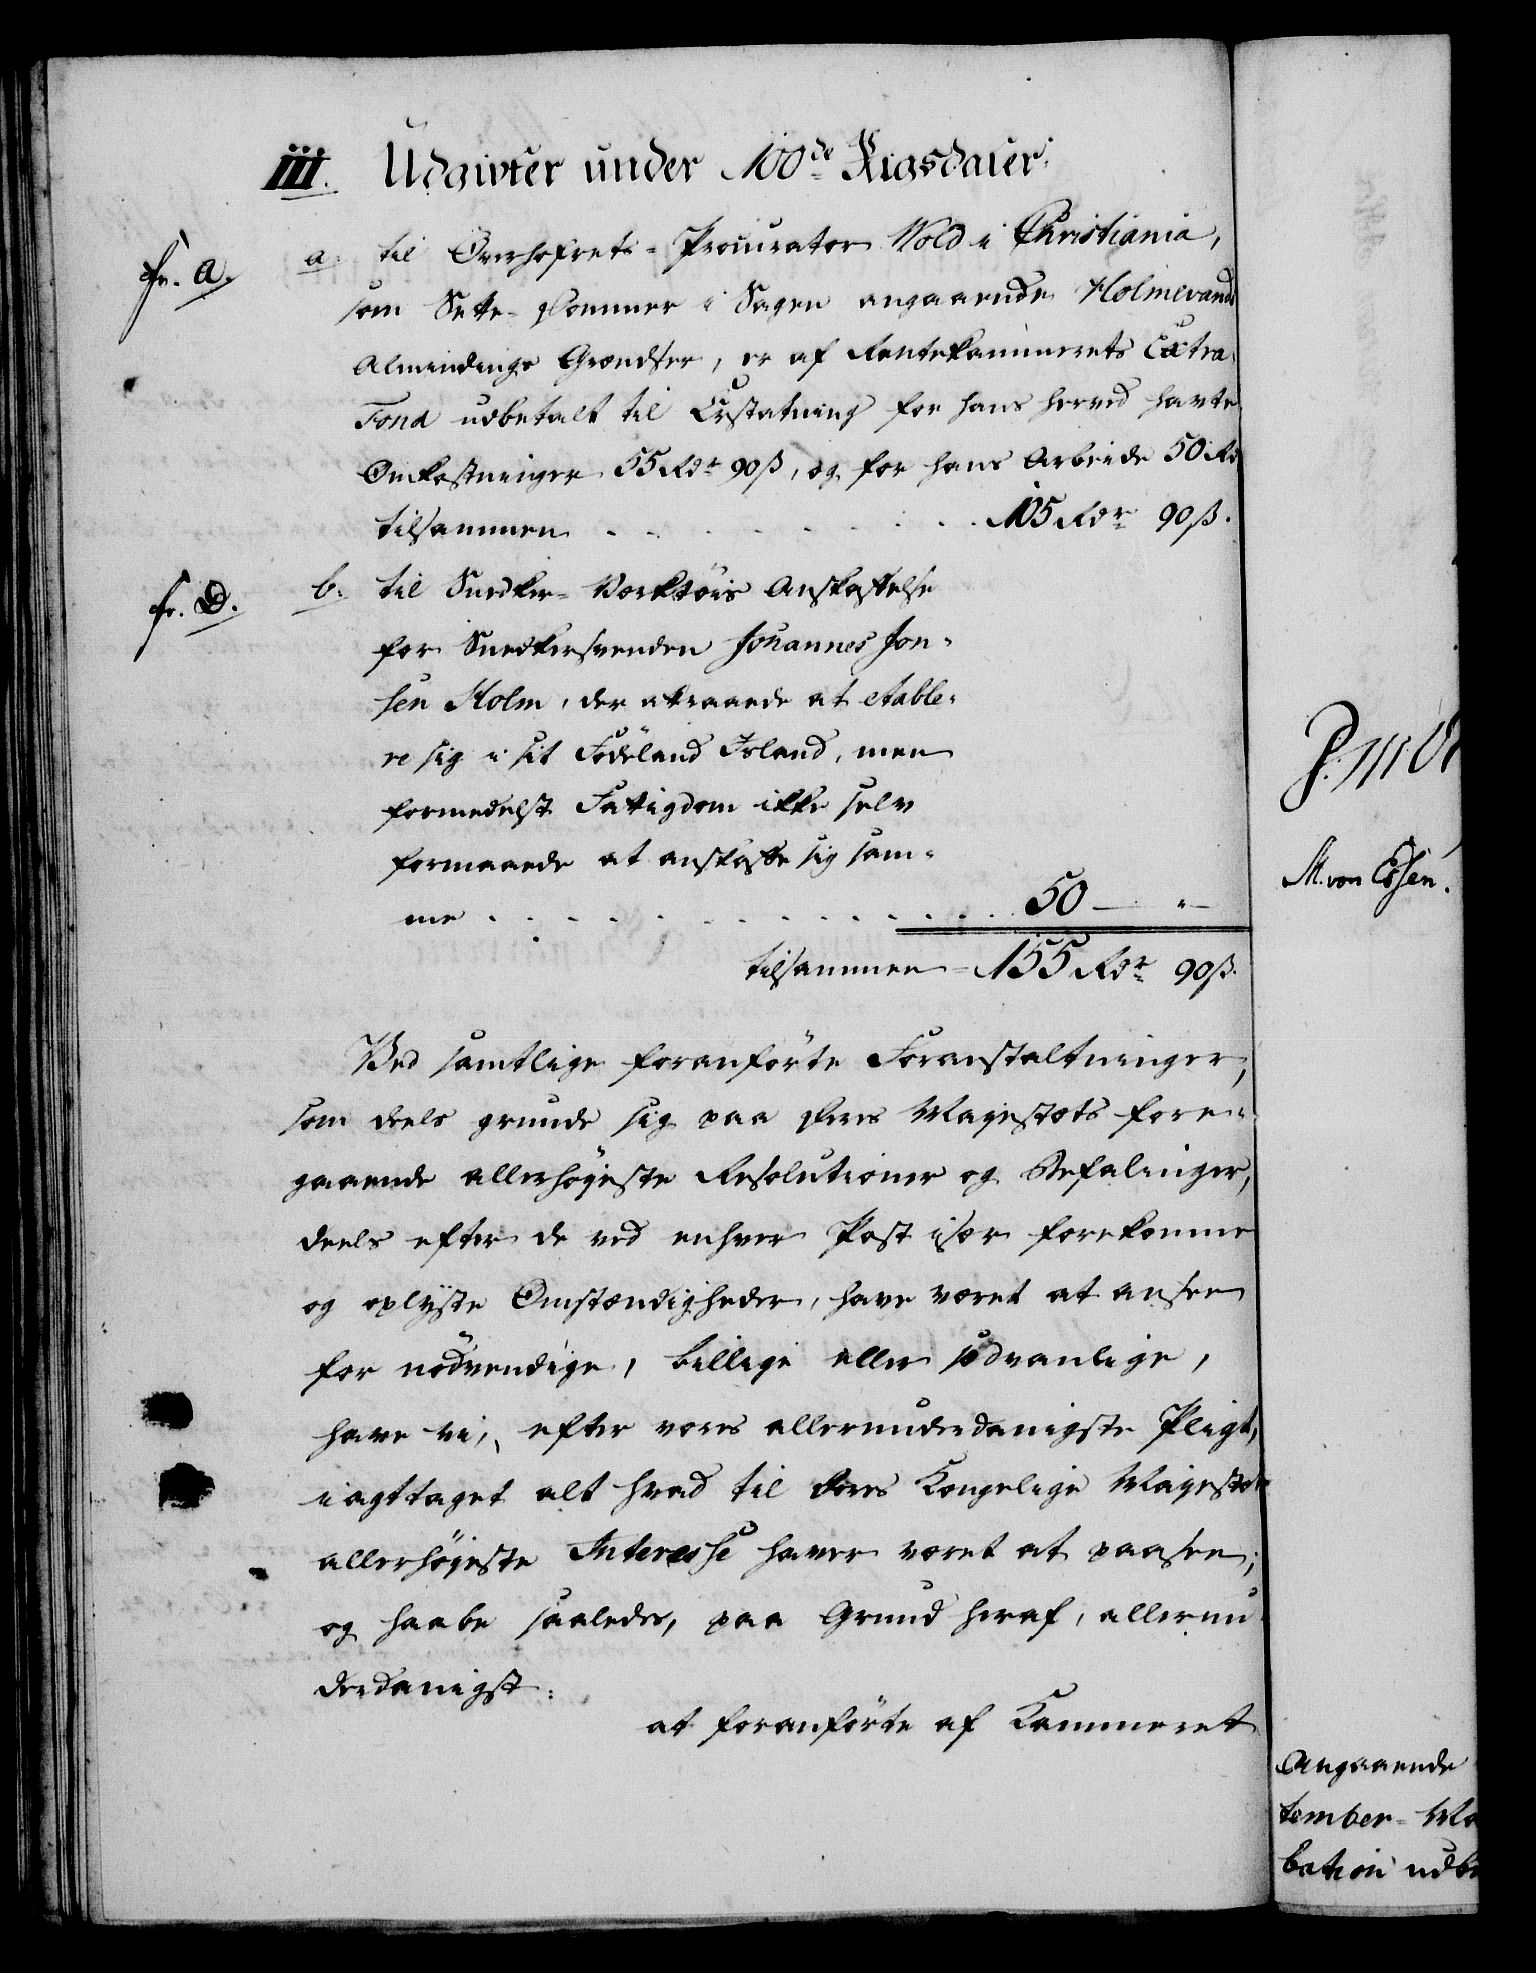 III. Udgivter under 100de Rigsdaler.
fr. a.
a. til Overhofrets-Procurator Wold i Christiania,
som Sætte-Dommer i Sagen angaaende Holmevands
Almindings Grændser, er af Rentekammerets Extra
Fond udbetalt til Erstatning for hans herved havte
Omkostninger 55 Rdr 90 ß, og for hans Arbeide 50 Rd
tilsammen . . . . . . . . . 105 Rdr 90 ß.
fr. D.
b. til Snedker-Værktöis Anskaffelse
for Snedkersvenden Johannes Jon-
sen Holm, der attraaede at etable-
re sig i sit Födeland Island, men
formedelst Fattigdom ikke selv
formaaede at anskaffe sig sam-
me . . . . . . . . . . . 50 — " —
tilsammen - 155 Rdr 90 ß.
Ved samtlige foranförte Foranstaltninger,
som deels grunde sig paa Deres Majestæts fore-
gaaende allerhöjeste Resolutioner og Befalinger,
deels efter de ved enhver Post især forekomne
og oplyste Omstændigheder, have været at ansee
for nödvendige, billige eller sædvanlige,
have vi, efter vores allerunderdanigste Pligt,
iagttaget alt hvad til Deres Kongelige Majestæts
allerhöjeste Interesse haver været at paasee;
og haabe saaledes, paa Grund heraf, allerun-
derdanigst:
at foranförte af Kammeret
M. von Essen.
Angaaende
tember-Ma
bation udbe